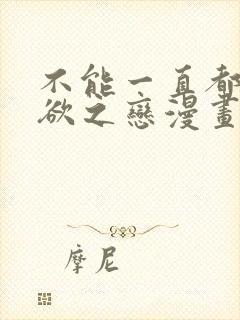 不能一直都
欲之戀漫畫
摩尼